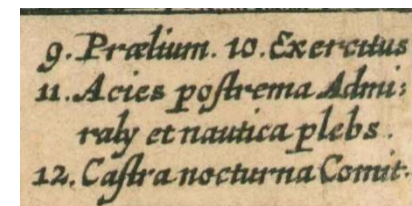 9. Prælium. 10. Exercitus
11. Acies poſtrema Admi:
raly et nautica plebs.
12. Caſtra nocturna Comit.